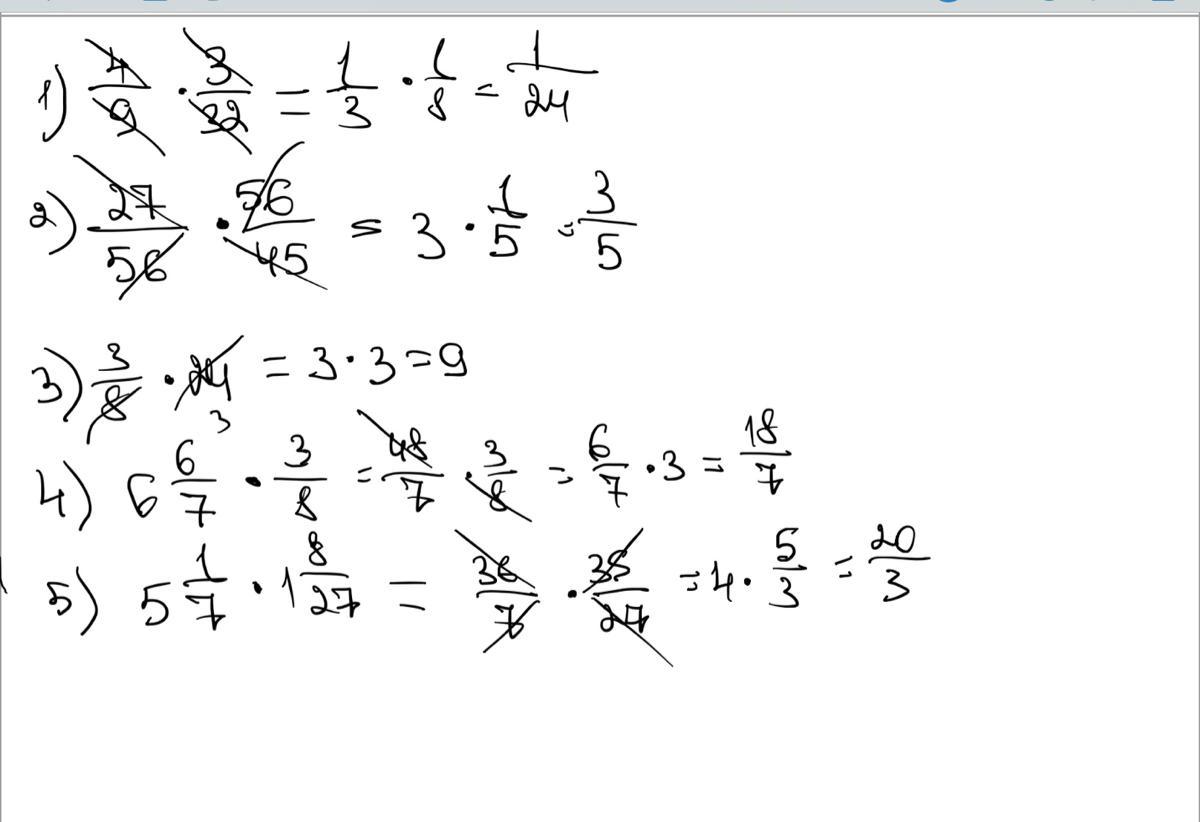 1) 4/9 · 3/32 = 1/3 · 1/8 = 1/24
2) 27/56 · 56/45 = 3 · 1/5 = 3/5
3) 3/8 · 24 = 3 · 3 = 9
3
4) 6 6/7 · 3/8 = 48/7 · 3/8 = 6/7 · 3 = 18/7
5) 5 1/7 · 1 8/27 = 36/7 · 35/27 = 4 · 5/3 = 20/3